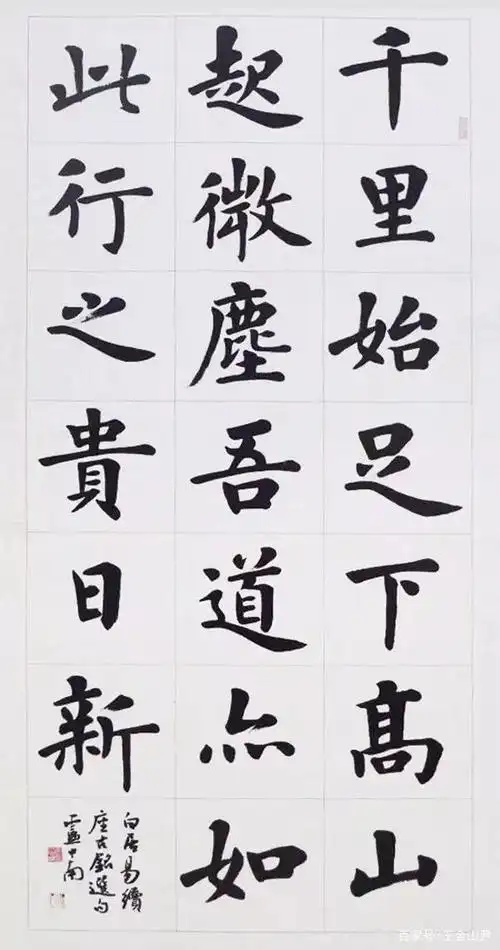 千里始足下髙山
起微塵吾道亦如
此行之貴日新
白居易續
座右銘選句
盧中南
百家号